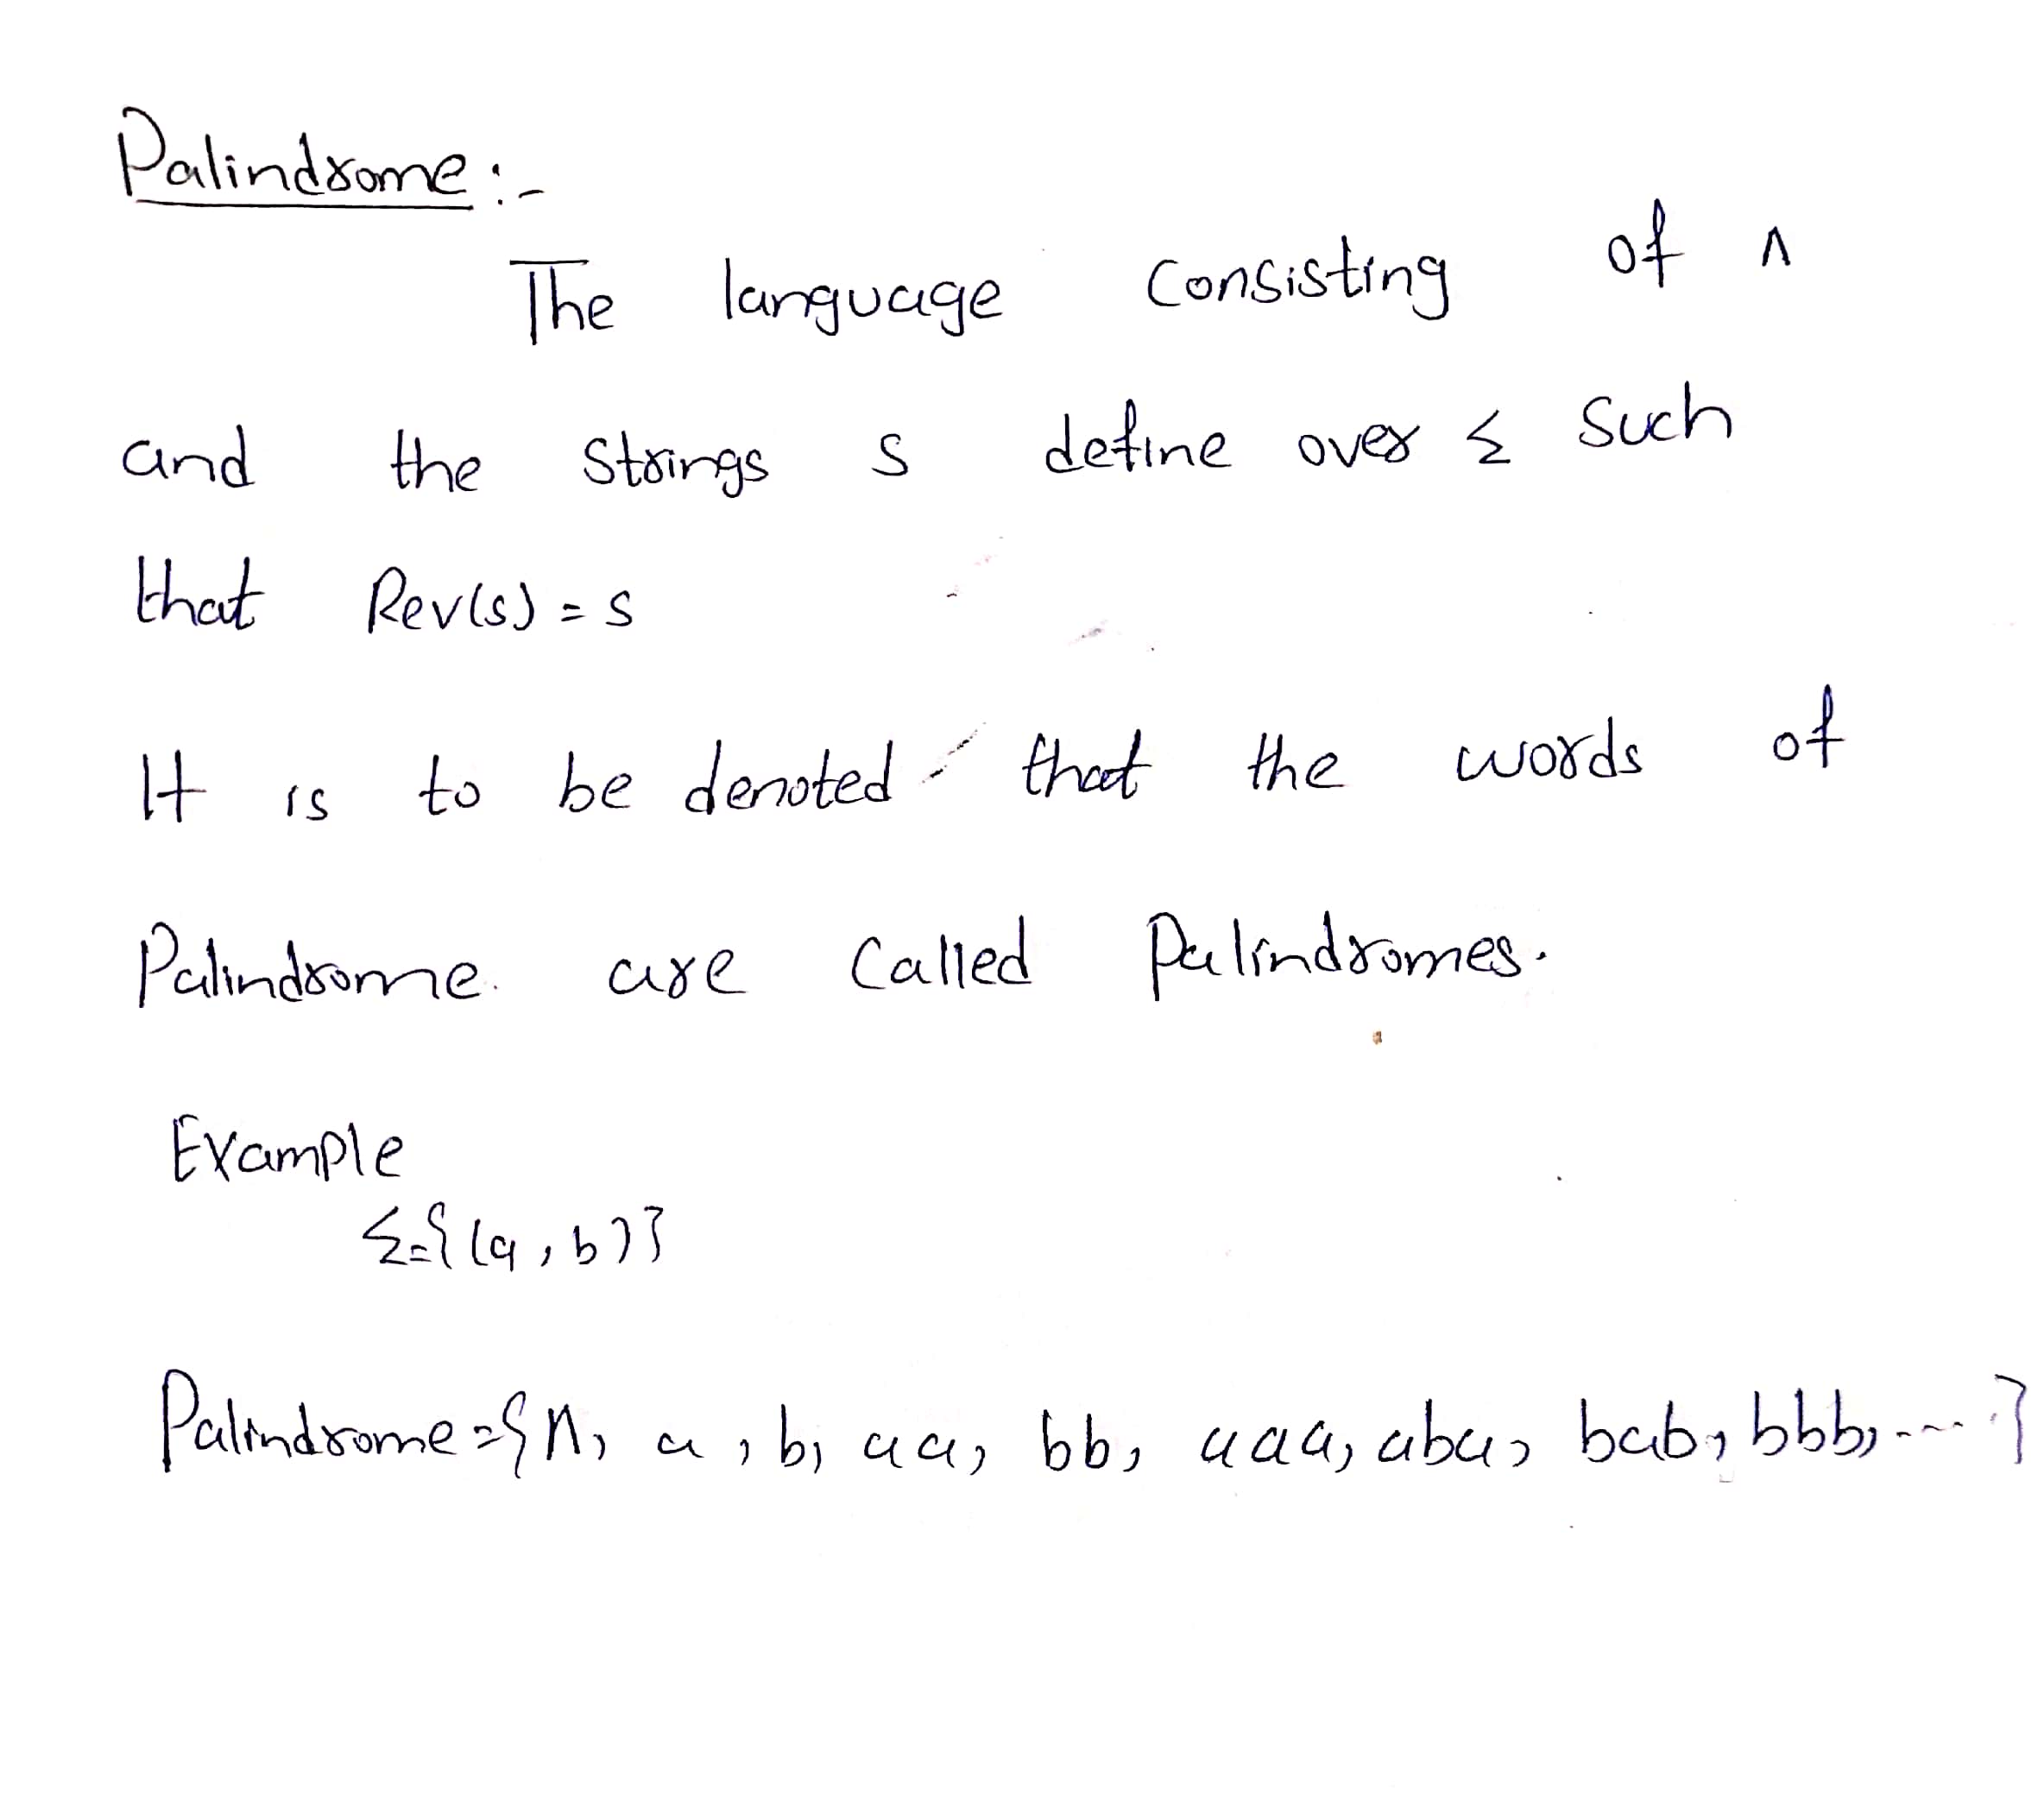 Palindrome:-
The language Consisting of Λ
and the Strings s define over Σ Such
that Rev(s)=s
It is to be denoted that the words of
Palindrome are Called Palindromes.
Example
Σ={(a,b)}
Palindrome={Λ, a, b, aa, bb, aaa, aba, bab, bbb,----}